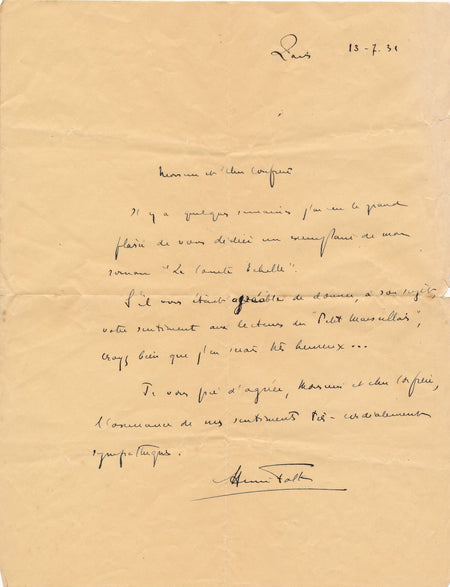 Paris 13-7.31
Monsieur et cher Confrère
Il y a quelques semaines j'ai eu le grand
plaisir de vous dédier un exemplaire de mon
roman "Le Comte Echelle".
S'il vous était agréable de donner, à son sujet
votre sentiment aux lecteurs du "Petit Marseillais",
croyez bien que j'en serais très heureux...
Je vous prie d'agréer, Monsieur et cher Confrère,
l'assurance de mes sentiments très cordialement
sympathiques.
Henri Falk